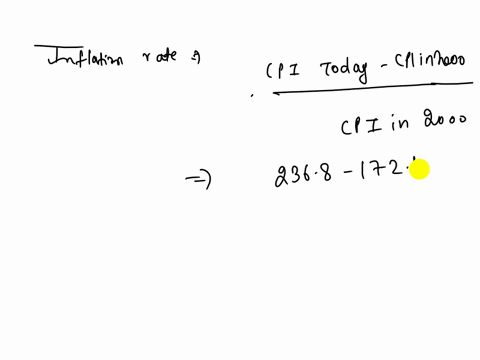 Inflation rate ⇒
CPI Today - CPI in 2000
CPI in 2000
=> 236.8 - 172.